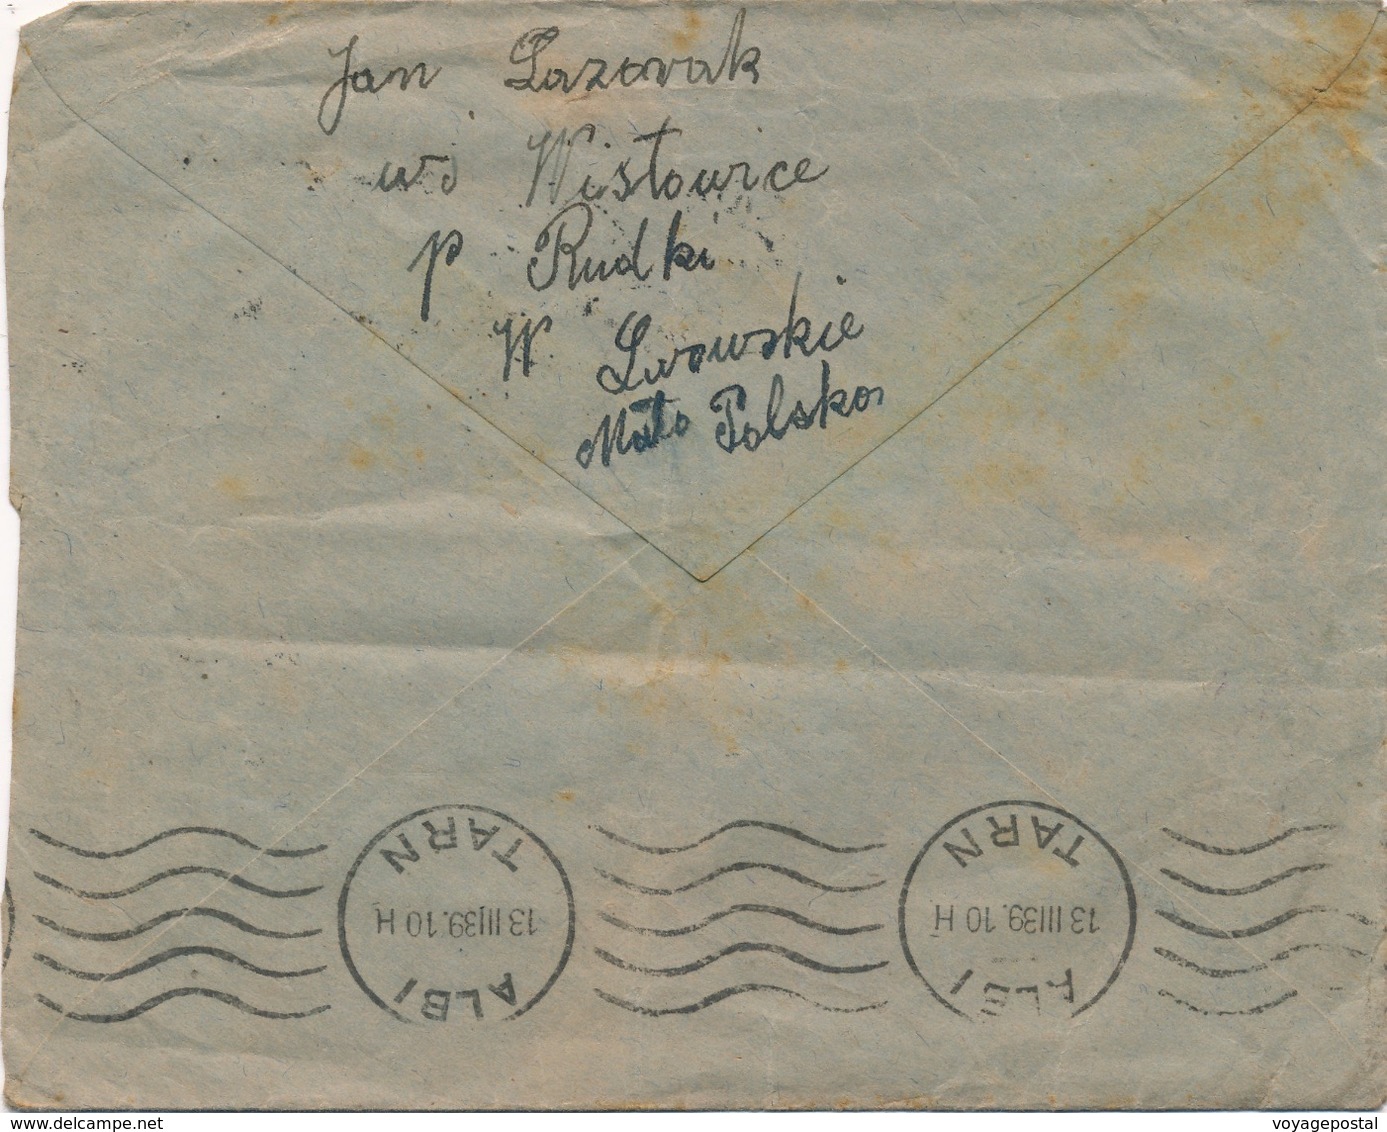 Jan Lazorak
wś Wistowice
p Rudki
W. Lwowskie
Mało Polska
ALBI
13 III 39. 10 H
TARN
ALBI
13 III 39. 10 H
TARN
www.delcampe.net
voyagepostal